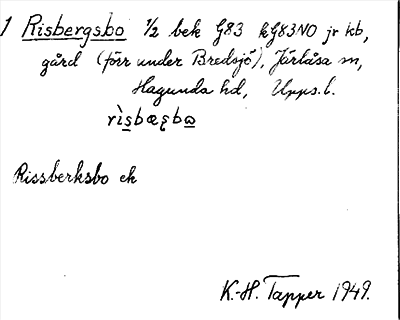 1 Risbergsbo 1/2 bek G83 kG83NO jr kb,
gård (förr under Bredsjö), Järlåsa sn,
Hagunda hd, Upps. l.
rìsbæʂbɷ
Rissberksbo ek
K.-H. Tapper 1949.